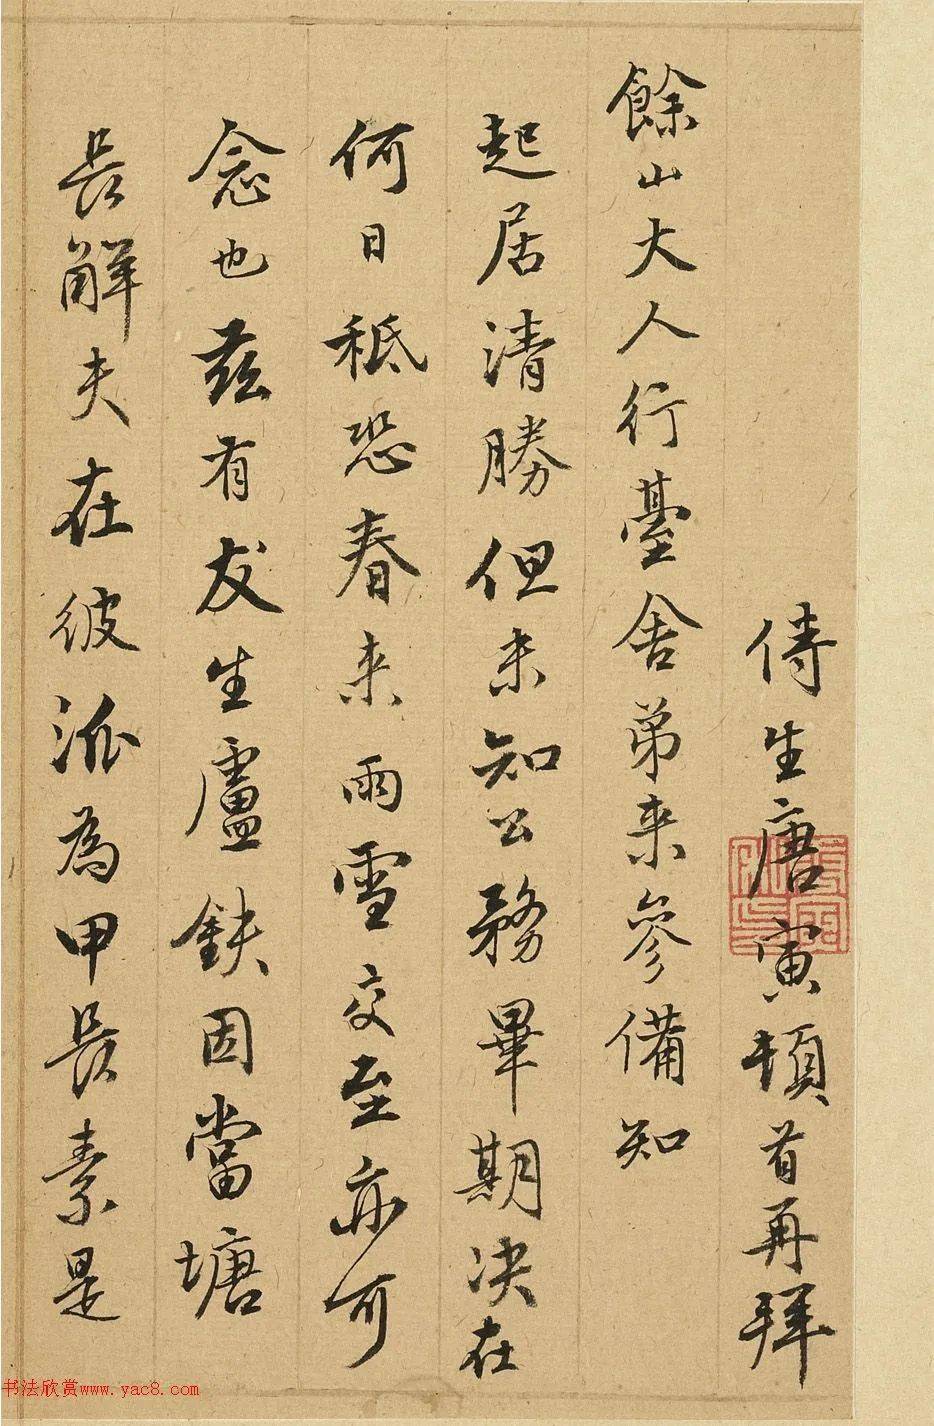 侍生唐寅頓首再拜
餘山大人行臺舍弟来參備知
起居清勝但未知公務畢期决在
何日秪恐春来雨雪交至亦可
念也茲有友生盧鉄因當塘
長解夫在彼派為甲長素是
书法欣赏www.yac8.com